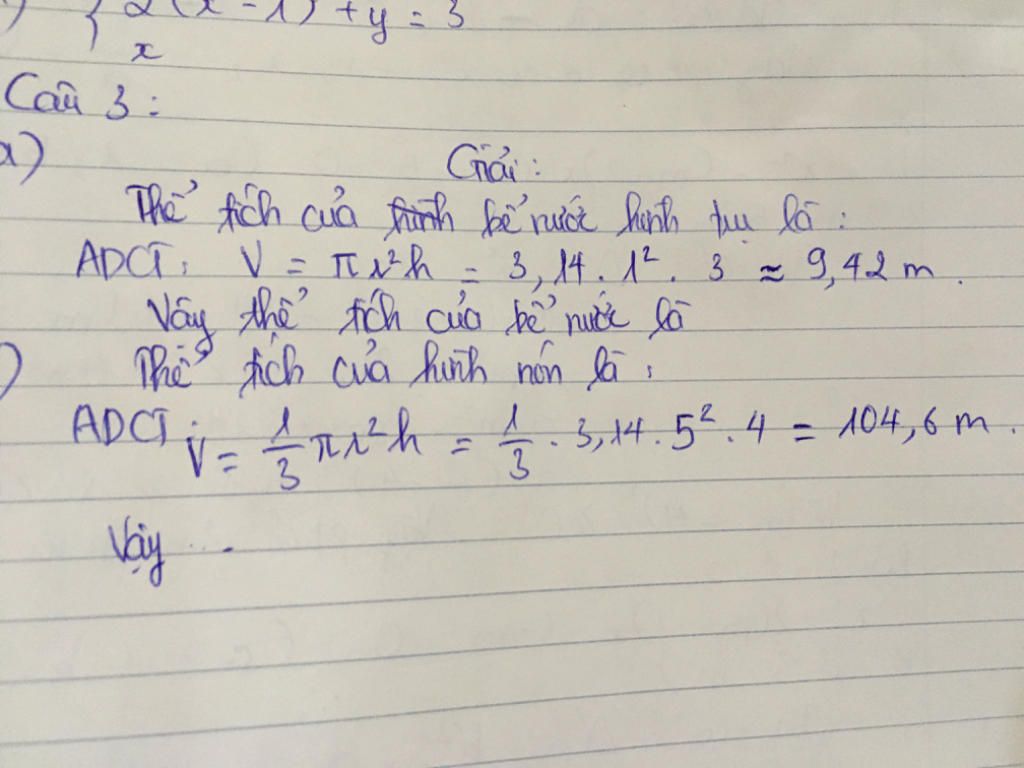 ) { 2(x - 1) + y = 3
x
Câu 3 :
a)
Giải :
Thể tích của hình bể nước hình trụ là :
ADCT : V = πr²h = 3,14 . 1² . 3 ≈ 9,42 m .
Vậy thể tích của bể nước là
) Thể tích của hình nón là :
ADCT : V = 1/3 πr²h = 1/3 . 3,14 . 5² . 4 = 104,6 m .
Vậy ...